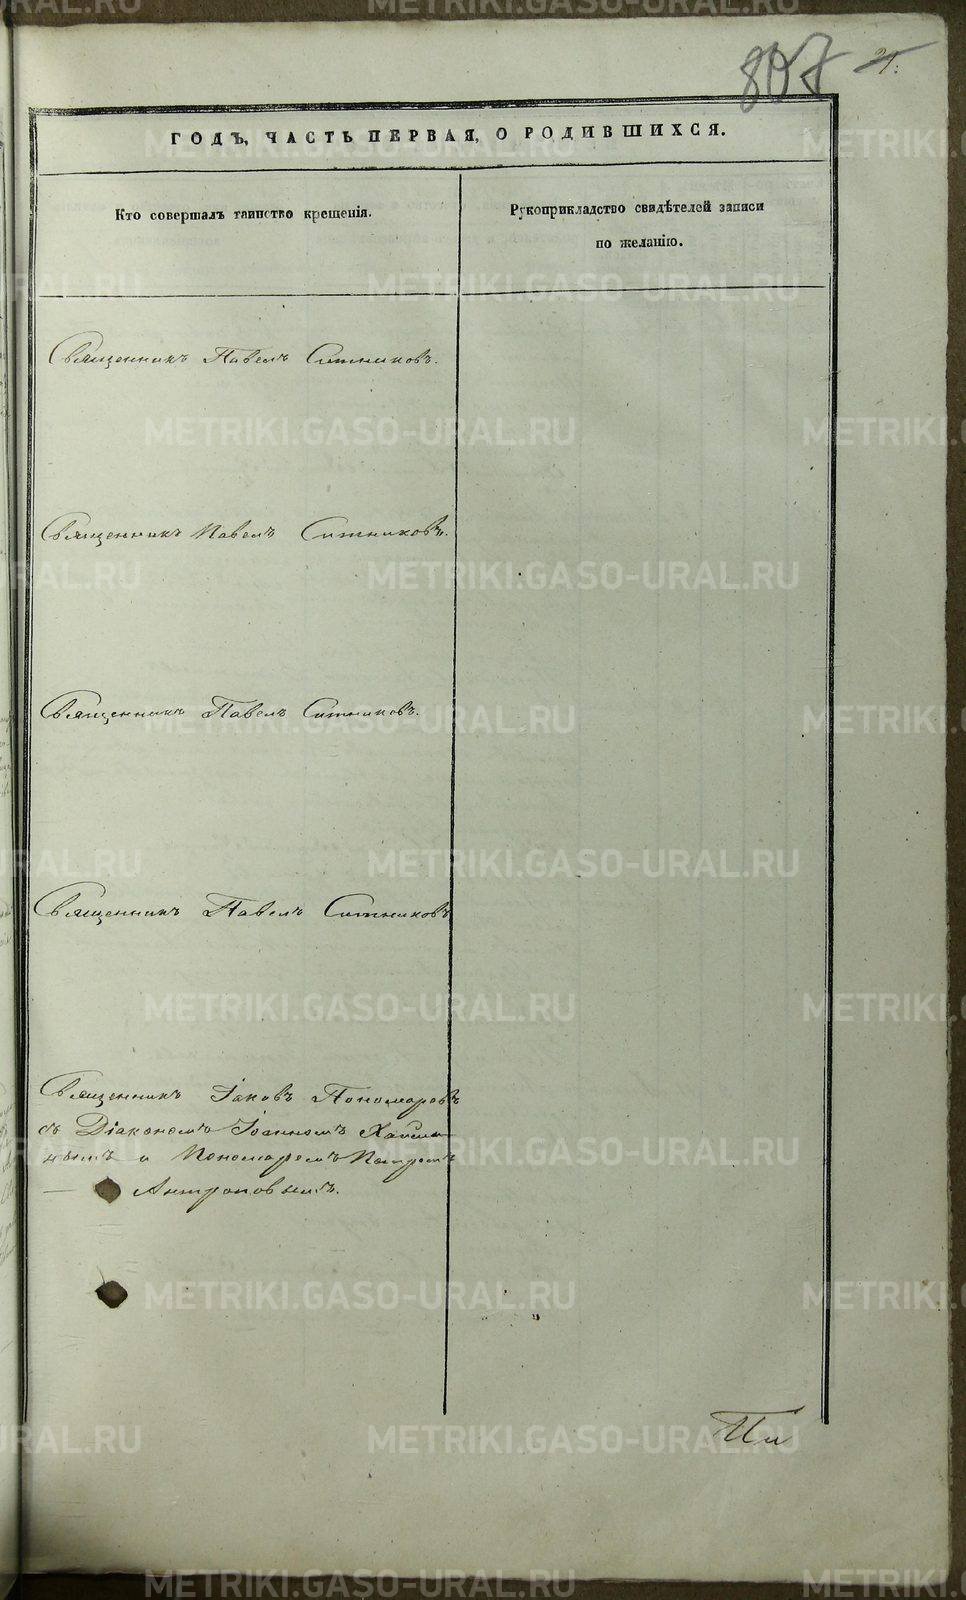 807 21.
ГОДЪ, ЧАСТЬ ПЕРВАЯ, О РОДИВШИХСЯ.
Кто совершалъ таинство крещенія.
Рукоприкладство свидѣтелей записи
по желанію.
Священникъ Павелъ Ситниковъ.
Священникъ Павелъ Ситниковъ.
Священникъ Павелъ Ситниковъ.
Священникъ Павелъ Ситниковъ
Священникъ Іаковъ Пономаревъ
съ Діакономъ Іоанномъ
и Пономаремъ Петромъ
Антроповымъ.
METRIKI.GASO-URAL.RU